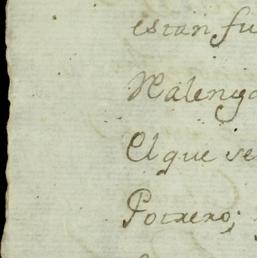 estan fu
Halenga
El que se
Potrero;